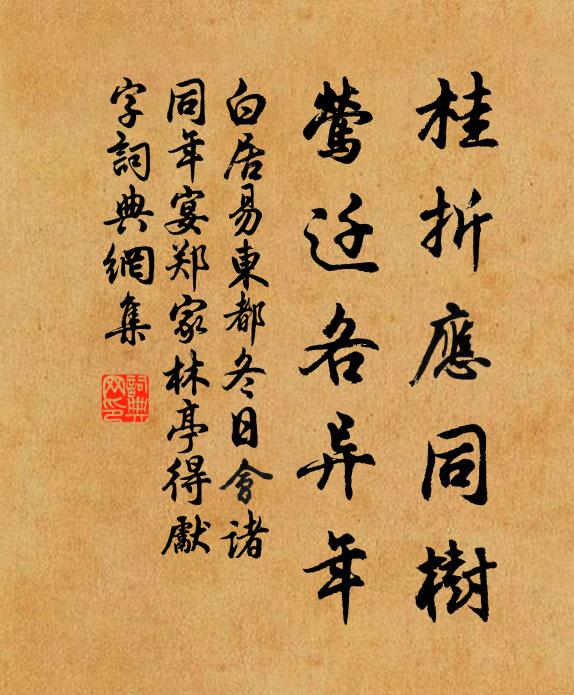 桂折應同樹
鶯迁各异年
白居易東都冬日會諸
同年宴郑家林亭得獻
字詞典網集
詞典网印